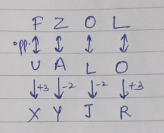 F Z O L
opp. ↕ ↕ ↕ ↕
U A L O
↓+3 ↓-2 ↓-2 ↓+3
X Y J R